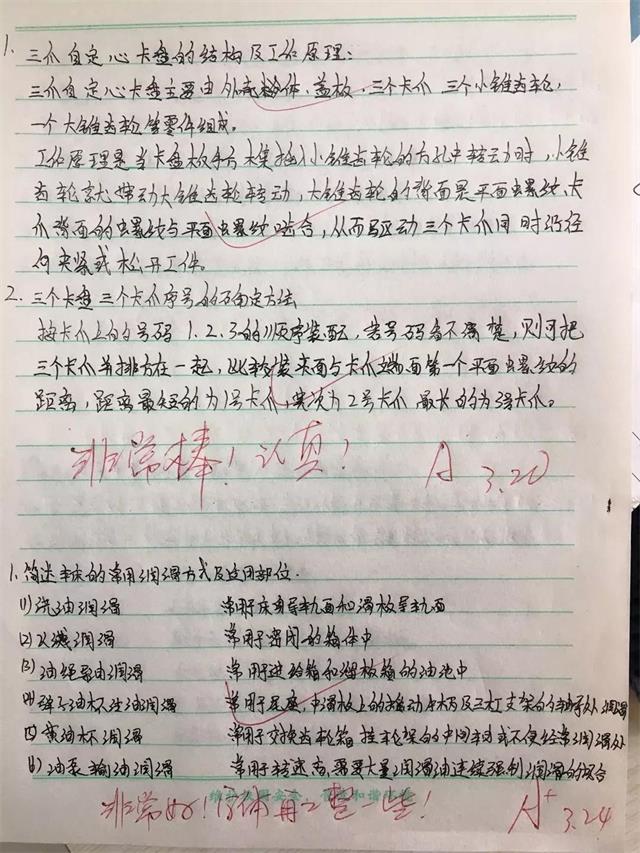 1. 三爪自定心卡盘的结构及工作原理:
三爪自定心卡盘主要由外壳粉体、盖板、三个卡爪 三个小锥齿轮,
一个大锥齿轮等零件组成。
工作原理是当卡盘板手方榫插入小锥齿轮的方孔中转动时,小锥
齿轮就带动大锥齿轮转动,大锥齿轮的背面是平面螺纹,卡
爪背面的螺纹与平面螺纹啮合,从而驱动三个卡爪同时沿径
向夹紧或松开工件。
2. 三个卡盘三个卡爪序号的确定方法
按卡爪上的号码 1. 2. 3的顺序装配,若号码看不清楚,则可把
三个卡爪并排放在一起,比较 夹面与卡爪端面第一个平面螺纹的
距离,距离最短的为1号卡爪,其次为2号卡爪 最长的为3号卡爪。
非常棒!认真! A 3.20
1. 简述车床的常用润滑方式及适用部位.
(1) 浇油润滑 常用于床身导轨面和滑板导轨面
(2) 溅润滑 常用于密闭的箱体中
(3) 油绳导油润滑 常用于进给箱和溜板箱的油池中
(4) 弹子油杯注油润滑 常用于尾座,中滑板上的 动手柄及三杠支架的 润滑
(5) 黄油杯润滑 常用于交换齿轮箱 挂轮架的中间轴或不便经常润滑处
(6) 油泵输油润滑 常用于转速高,需要大量润滑油连续强制润滑的场合
非常好!字体再工整一些! A+ 3.24